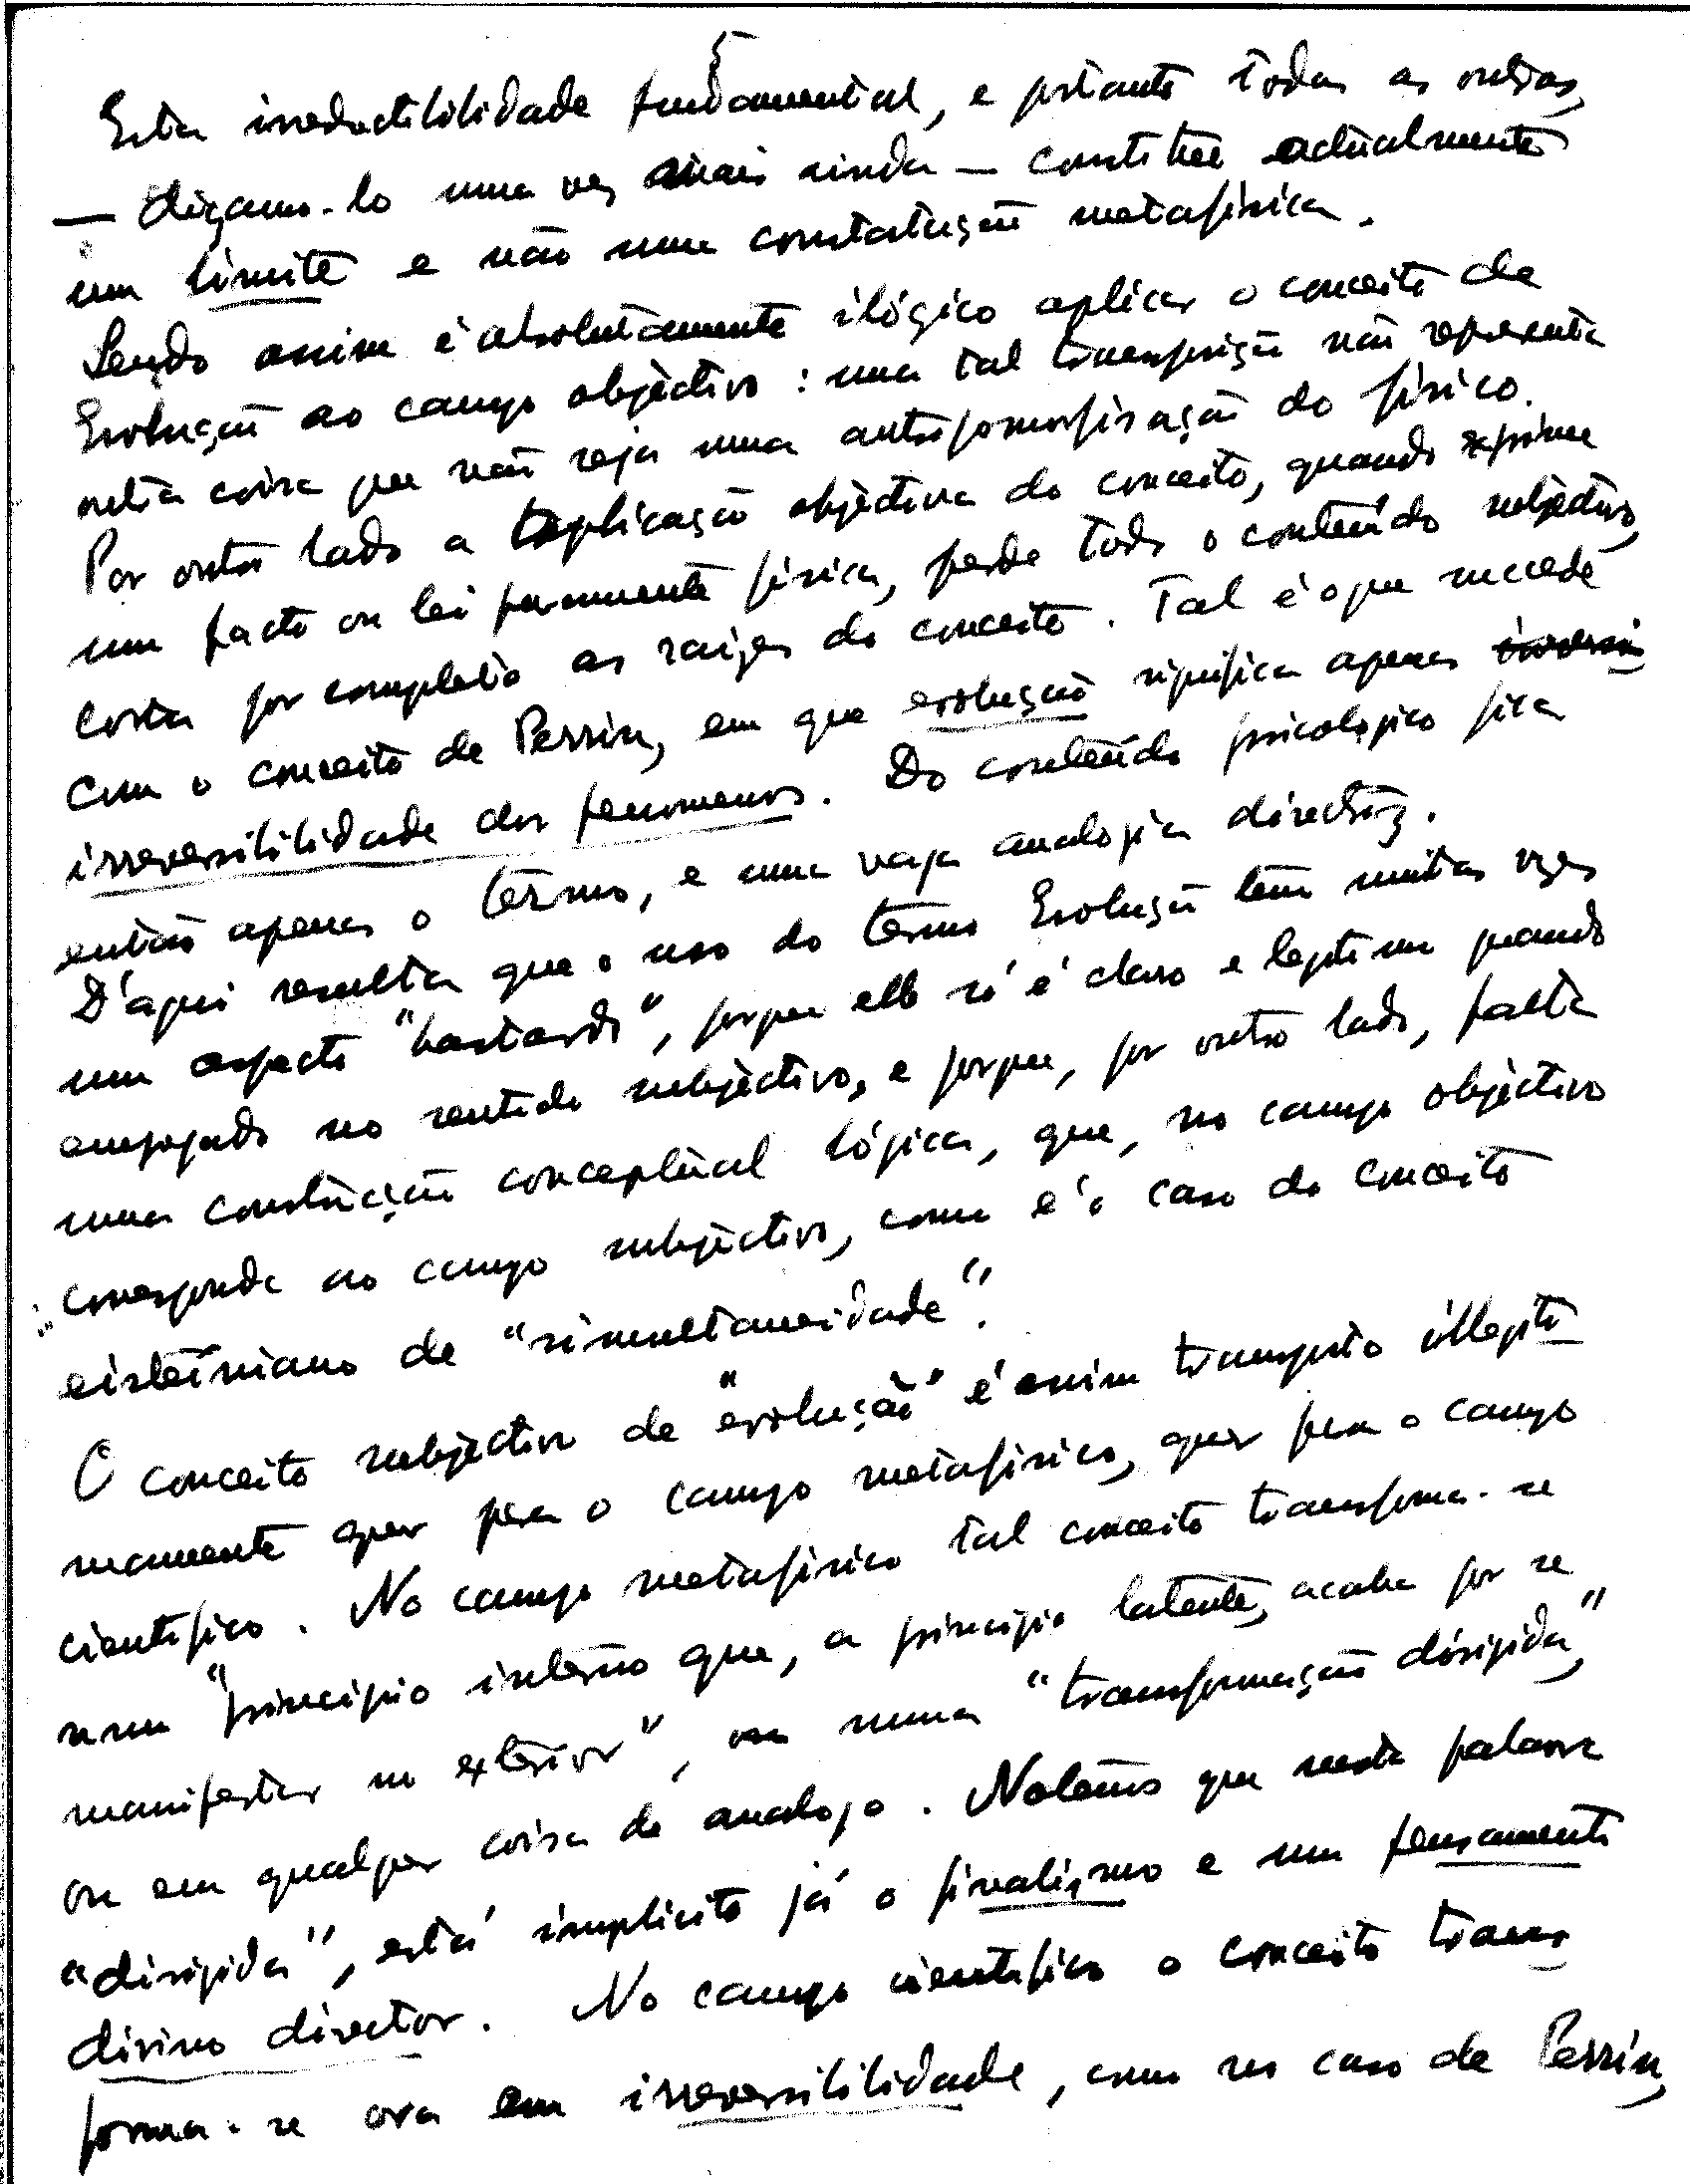 5
Esta irreductibilidade fundamental, e portanto todas as outras,
— digamo-lo uma vez mais ainda — constitue actualmente
um limite e não uma constatação metafísica.
Sendo assim é absolutamente ilógico aplicar o conceito de
Evolução ao campo objectivo: uma tal transposição não representa
outra coisa que não seja uma antropomorfisação do físico.
Por outro lado a aplicação objectiva do conceito, quando exprime
um facto ou lei puramente física, perde todo o conteúdo subjectivo,
corta por completo as raízes do conceito. Tal é o que sucede
com o conceito de Perrin, em que evolução significa apenas
irreversibilidade dos fenomenos. Do conteúdo psicologico fica
então apenas o têrmo, e uma vaga analogia directriz.
D'aqui resulta que o uso do têrmo Evolução tem muitas vezes
um aspecto "bastardo", porque elle só é claro e legitimo quando
empregado no sentido subjectivo, e porque, por outro lado, falta
uma construção conceptual lógica, que, no campo objectivo
corresponda ao campo subjectivo, como é o caso do conceito
eisteiniano de "simultaneidade".
O conceito subjectivo de "evolução" é assim transposto illegiti-
mamente quer para o campo metafísico, quer para o campo
cientifico. No campo metafísico tal conceito transforma-se
num "principio interno que, a principio latente, acaba por se
manifestar no exterior", ou numa "transformação dirigida,"
ou em qualquer coisa de analogo. Notemos que nesta palavra
"dirigida", está implicito já o finalismo e um pensamento
divino director. No campo cientifico o conceito trans-
forma-se ora em irreversibilidade, como no caso de Perrin,